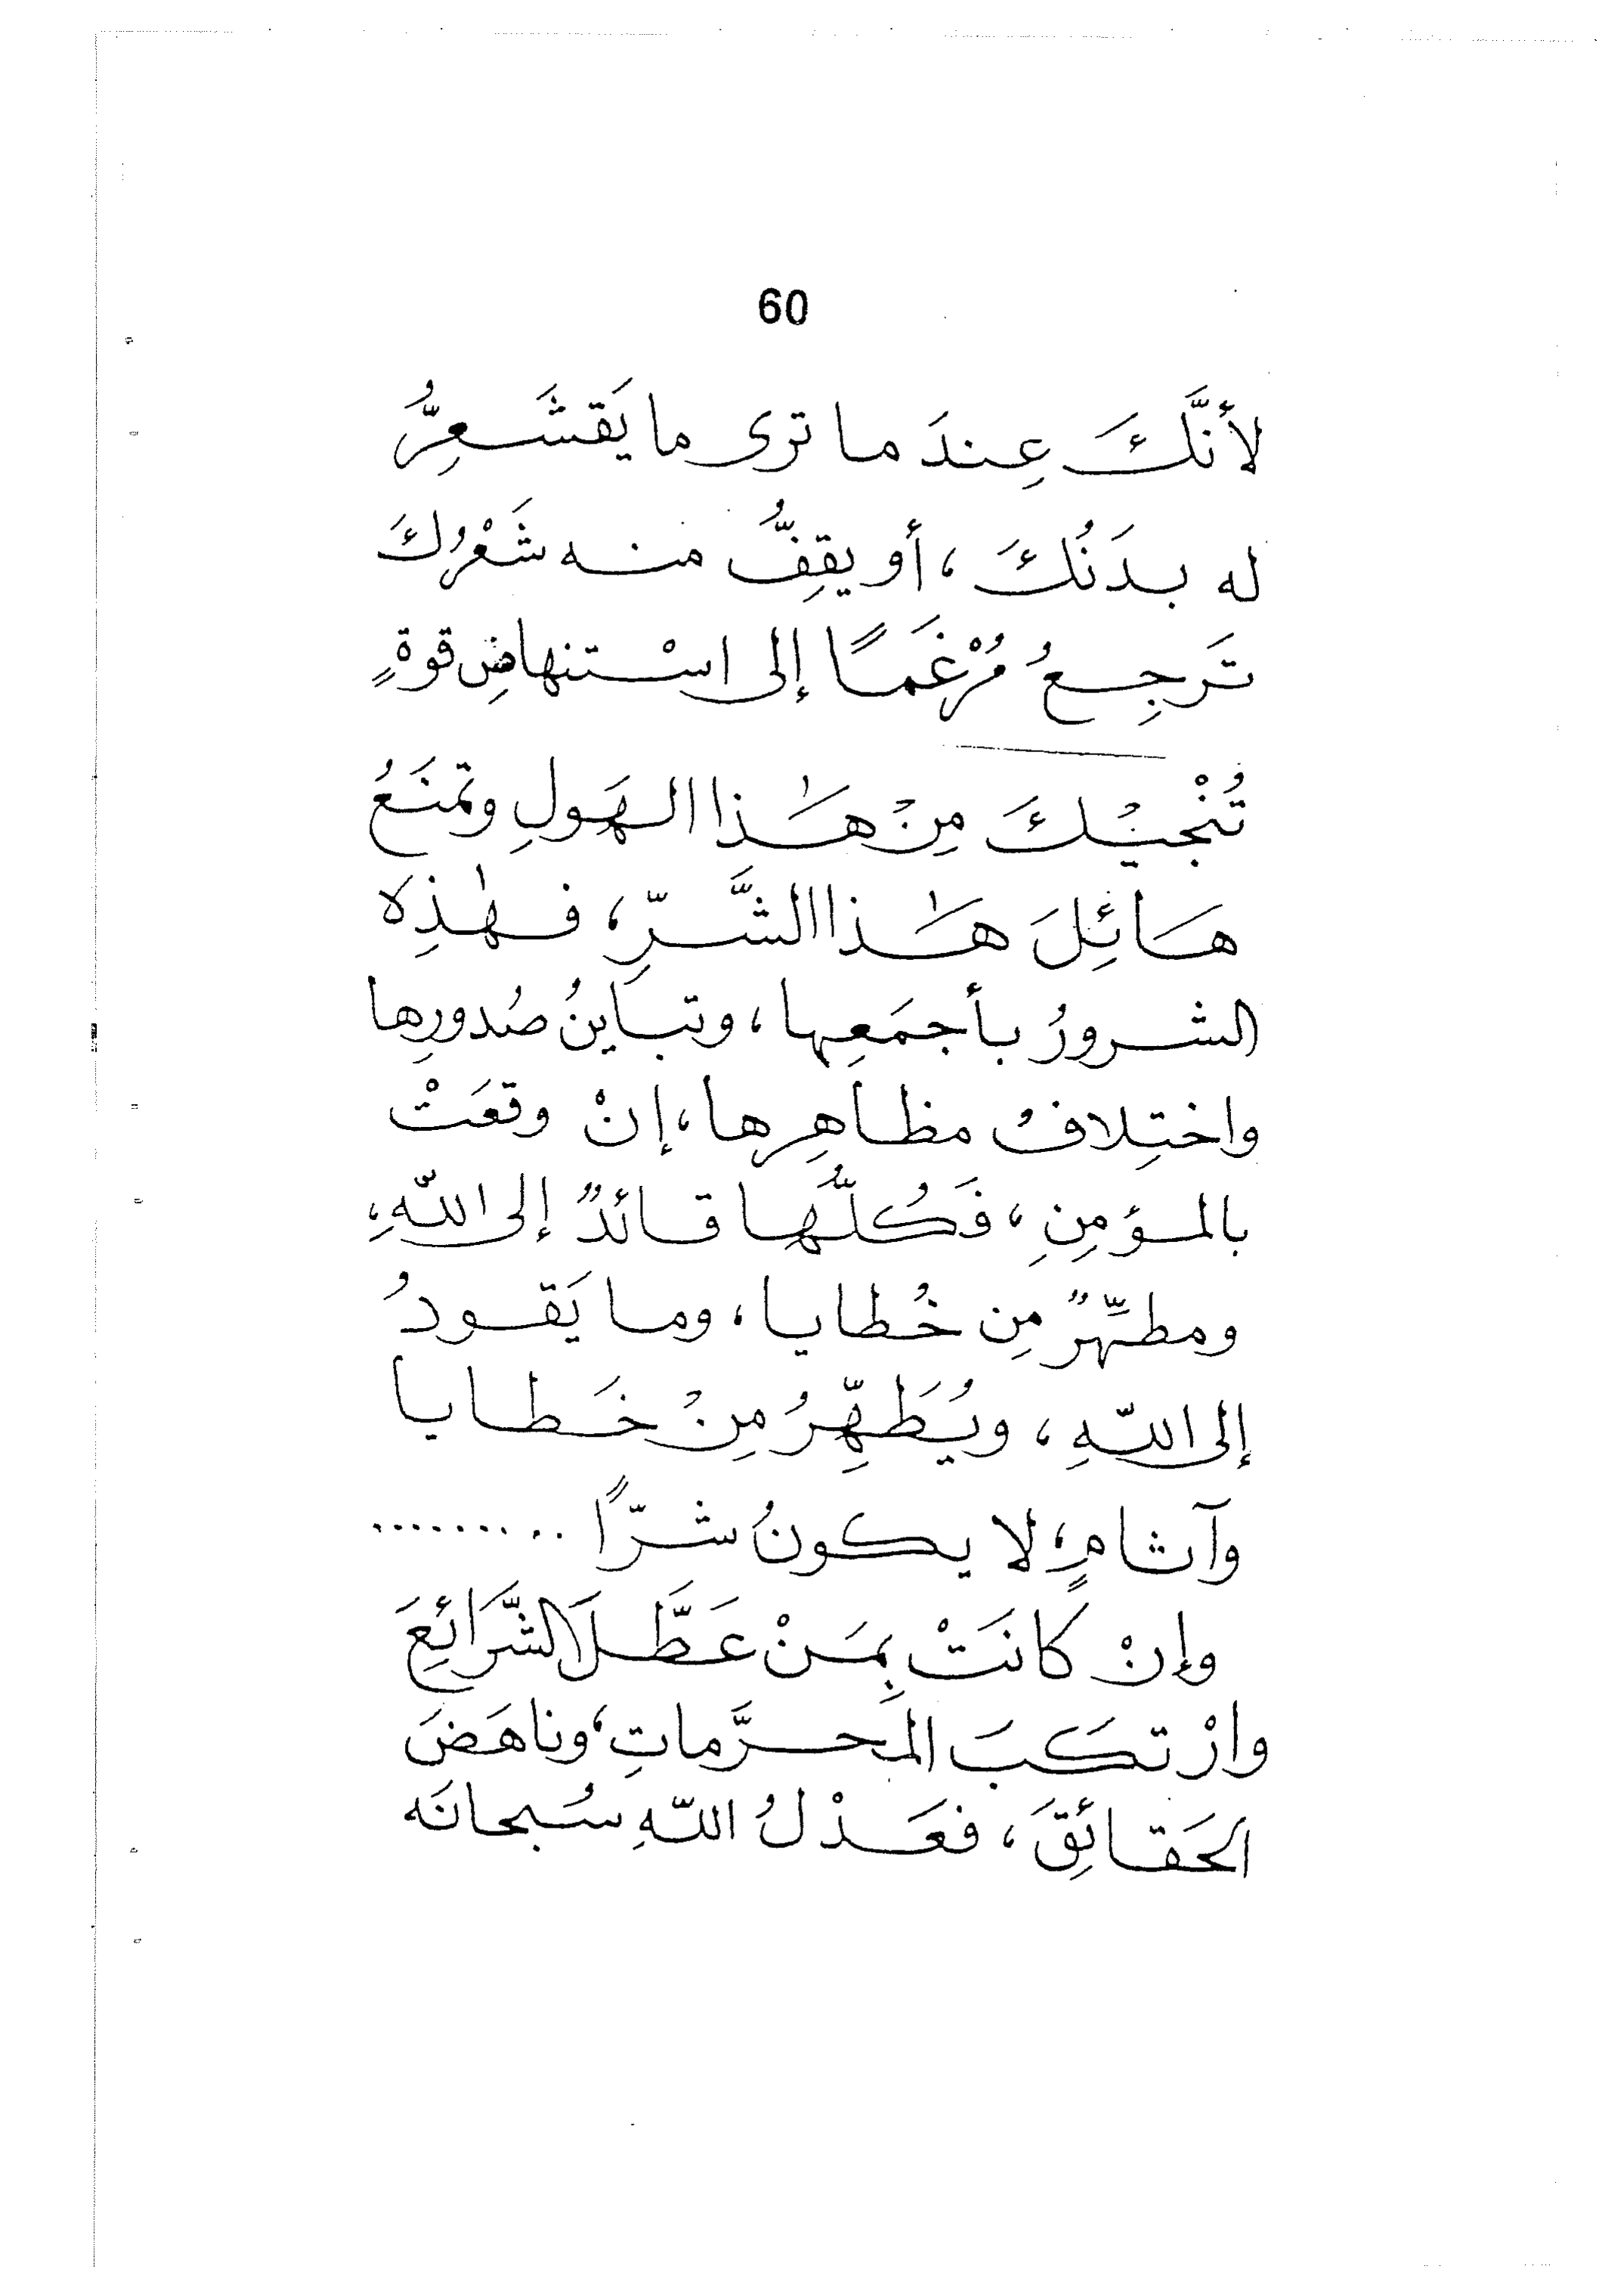 60
لأنَّكَ عِندَ ما ترى ما يَقشَعِرُّ
له بدَنُكَ، أو يقِفُّ منه شَعْرُكَ
تَرجِعُ مُرْغَمًا إلى اسْتنهاضِ قوةٍ
تُنْجيْكَ مِنْ هٰذا الهَولِ وتمنَعُ
هَائِلَ هٰذا الشَّرِّ، فهٰذِه
الشرورُ بأجمَعِها، وتبايُنُ صُدورِها
واختِلافُ مظاهِرِها، إنْ وقعَتْ
بالمؤمِنِ، فَكُلُّها قائدٌ إلى اللّهِ،
ومطهِّرٌ مِن خُطايا، وما يَقودُ
إلى اللّهِ، ويُطَهِّرُ مِنْ خَطايا
وآثامٍ، لا يكونُ شرًّا ..........
وإنْ كانَتْ بِمَنْ عَطَّلَ الشَّرَائِعَ
وارْتكَبَ المَحرَّماتِ، وناهَضَ
الحَقائِقَ، فعَذْلُ اللّهِ سُبحانَه